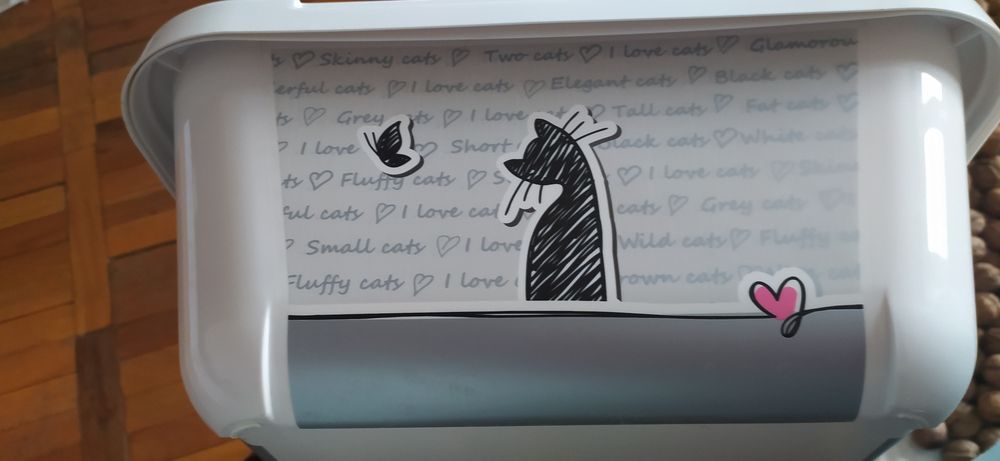 s ♡ Skinny cats ♡ Two cats ♡ I love cats ♡ Glamorou
erful cats ♡ I love cats ♡ Elegant cats ♡ Black cats ♡
ts ♡ Grey cats ♡ I love ♡ Tall cats ♡ Fat cats ♡
♡ I love ♡ Short black cats ♡ White cats
ts ♡ Fluffy cats ♡ S ♡ I love cats ♡ Skinn
ful cats ♡ I love cat cats ♡ Grey cats ♡
♡ Small cats ♡ I love Wild cats ♡ Fluffy
Fluffy cats ♡ I love rown cats ♡ cat